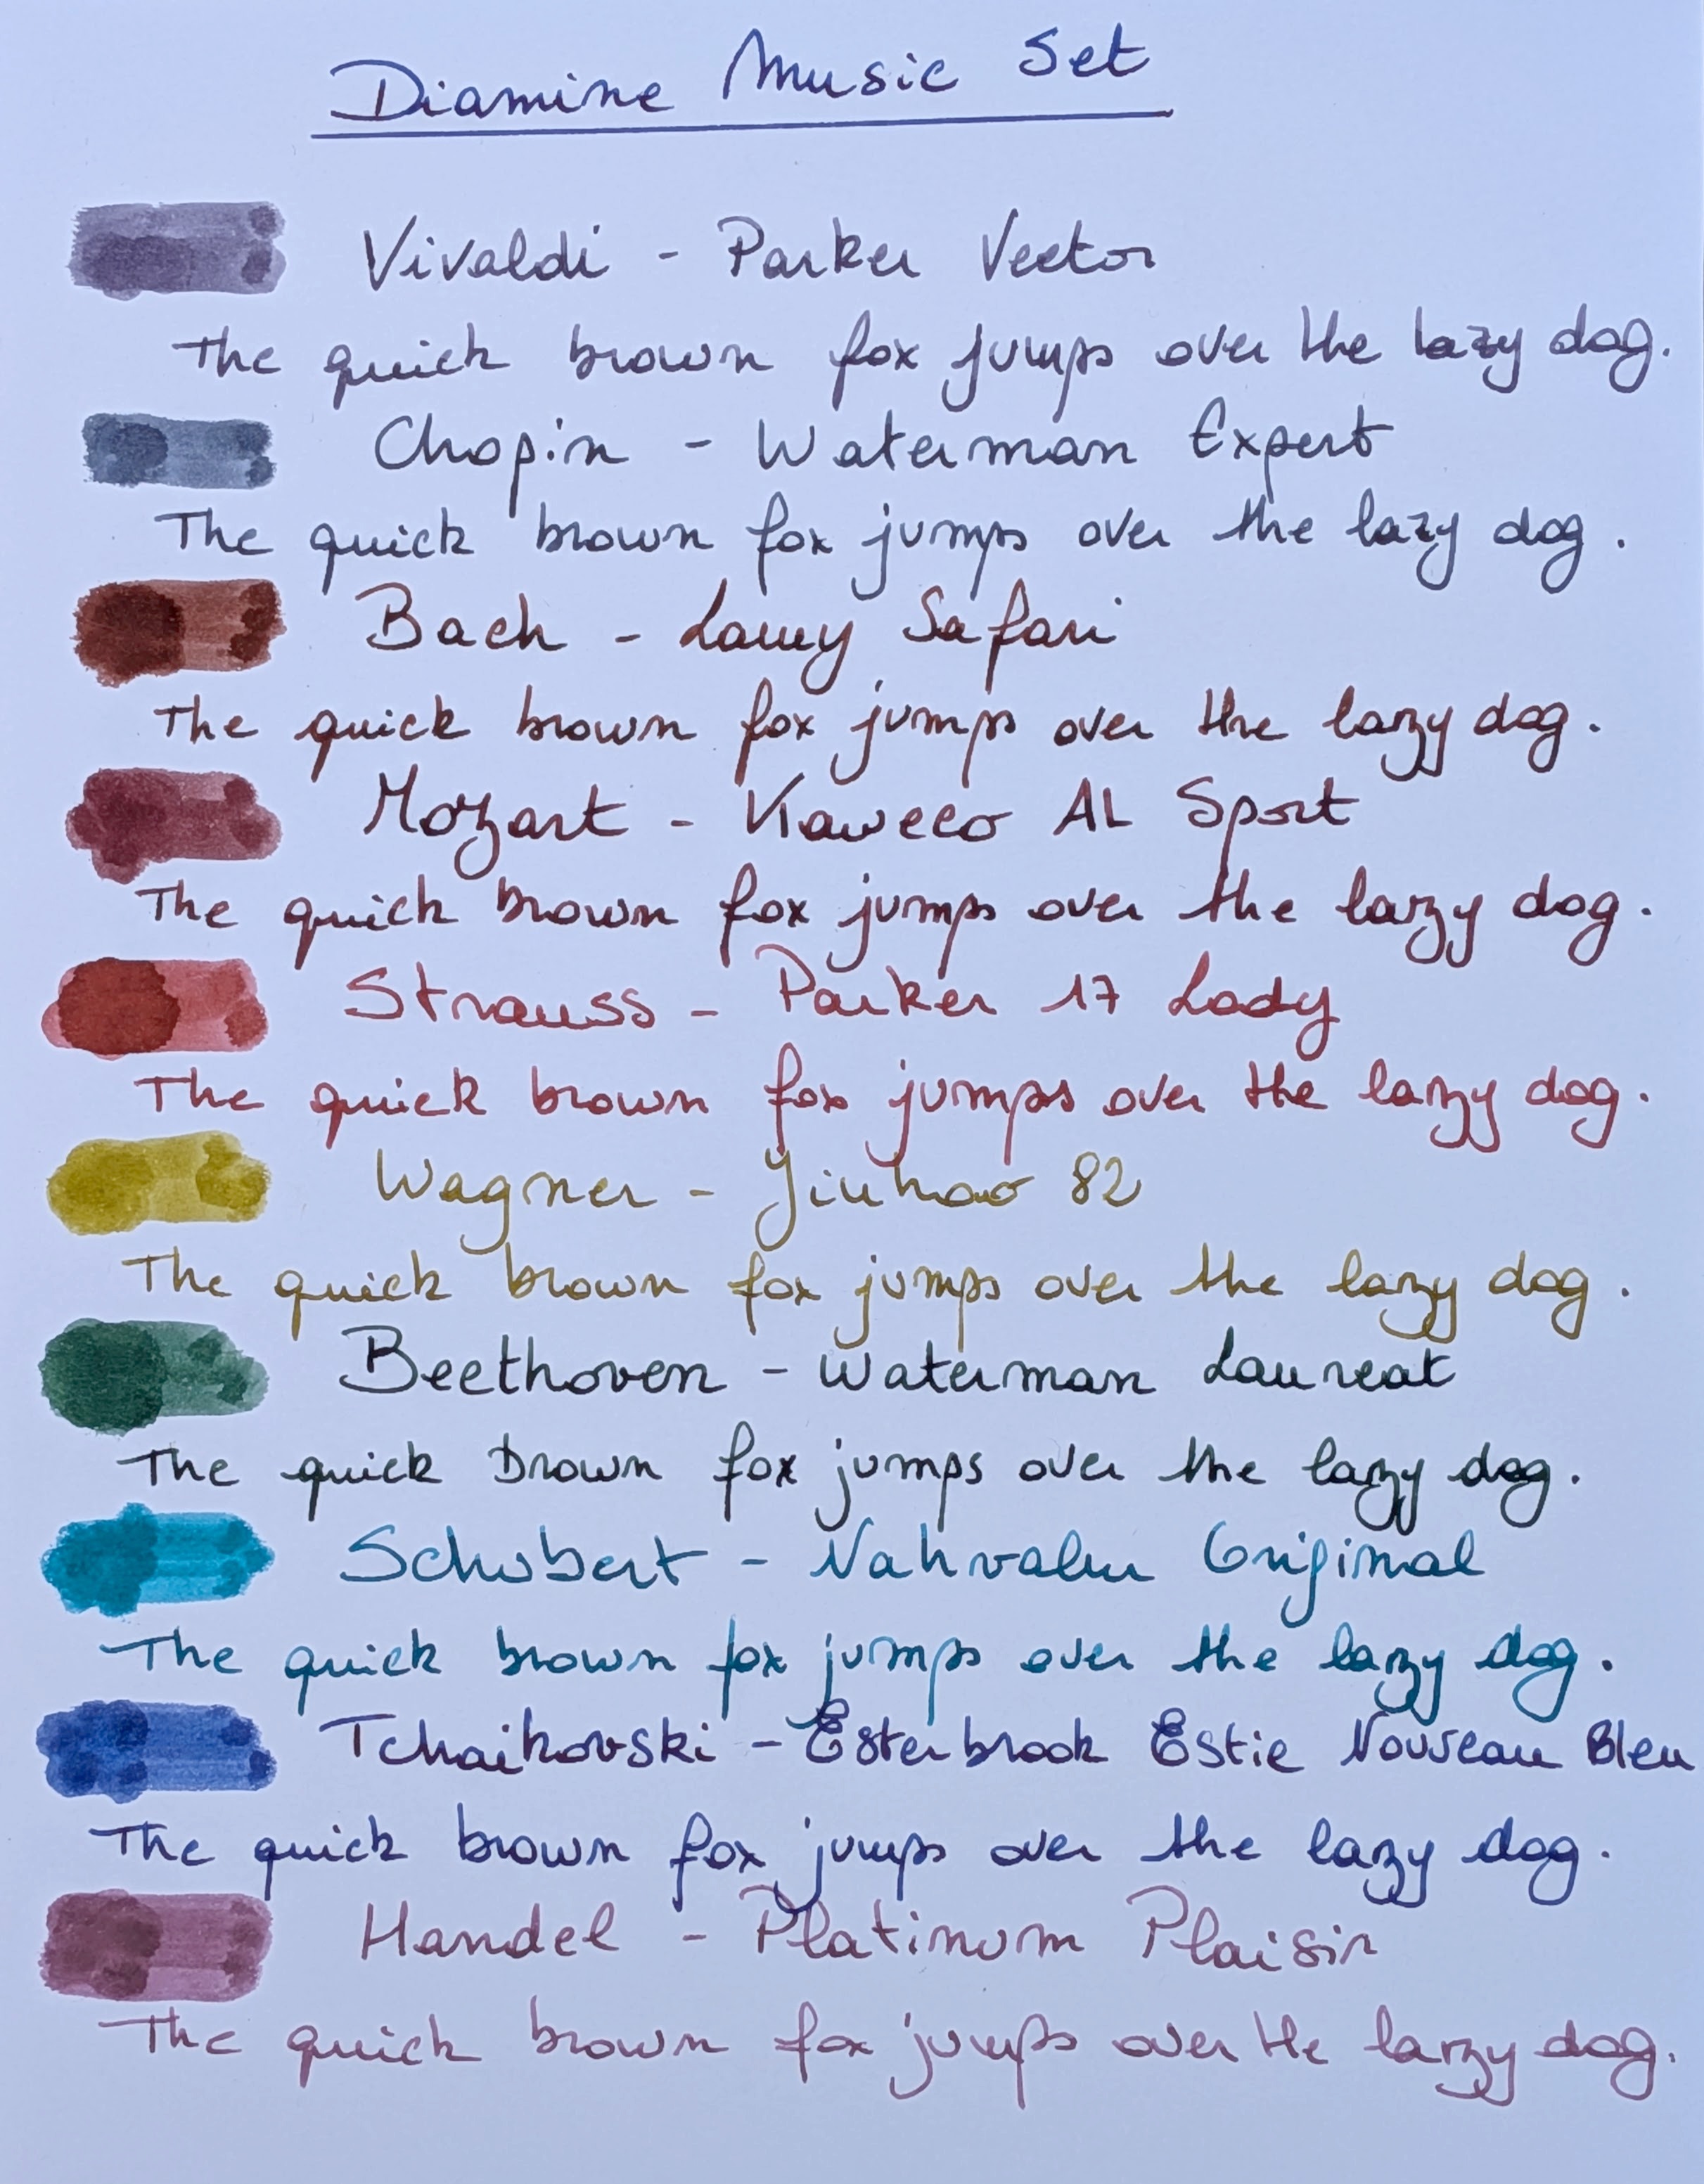 Diamine Music Set
Vivaldi - Parker Vector
The quick brown fox jumps over the lazy dog.
Chopin - Waterman Expert
The quick brown fox jumps over the lazy dog.
Bach - Lamy Safari
The quick brown fox jumps over the lazy dog.
Mozart - Kaweco AL Sport
The quick brown fox jumps over the lazy dog.
Strauss - Parker 17 Lady
The quick brown fox jumps over the lazy dog.
Wagner - Jinhao 82
The quick brown fox jumps over the lazy dog.
Beethoven - Waterman Laureat
The quick brown fox jumps over the lazy dog.
Schubert - Nahvalur Original
The quick brown fox jumps over the lazy dog.
Tchaikovski - Esterbrook Estie Nouveau Bleu
The quick brown fox jumps over the lazy dog.
Handel - Platinum Plaisir
The quick brown fox jumps over the lazy dog.